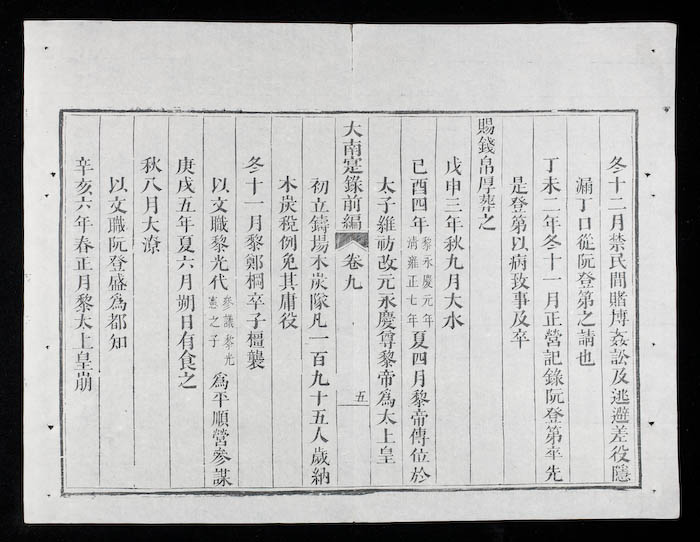 冬十二月禁民間賭博姦訟及逃避差役隱
漏丁口從阮登第之請也
丁未二年冬十一月正營記錄阮登第卒先
是登第以病致事及卒
賜錢帛厚葬之
戊申三年秋九月大水
己酉四年黎永慶元年清雍正七年夏四月黎帝傳位於
太子維祊改元永慶尊黎帝爲太上皇
大南寔錄前編 卷九 五
初立鑄場木炭隊凡一百九十五人歲納
木炭稅例免其庸役
冬十一月黎鄭棡卒子橿襲
以文職黎光代參議黎光憲之子爲平順營參謀
庚戌五年夏六月朔日有食之
秋八月大潦
以文職阮登盛爲都知
辛亥六年春正月黎太上皇崩